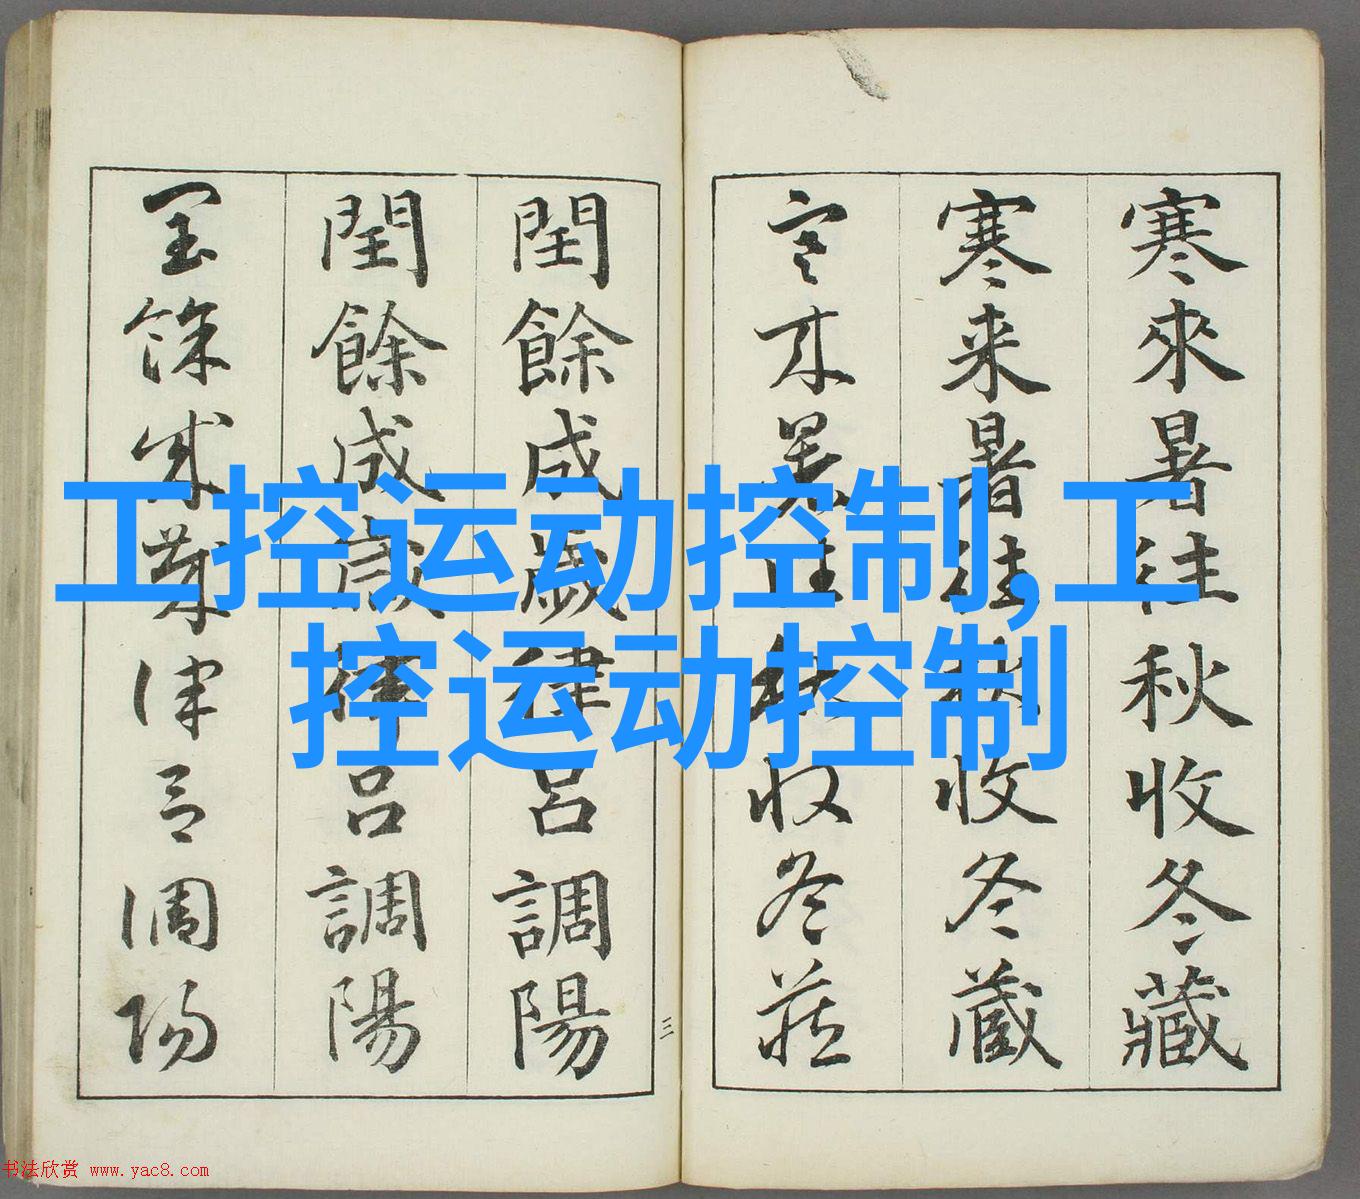 寒來暑往秋收冬藏
寒来暑往秋收冬蔵
寒来暑往秋收冬藏
閏餘成歲律呂調陽
閏餘成歳律呂調陽
閏餘成歲律呂調陽
三
工控运动控制,工
控运动控制
书法欣赏 www.yac8.com